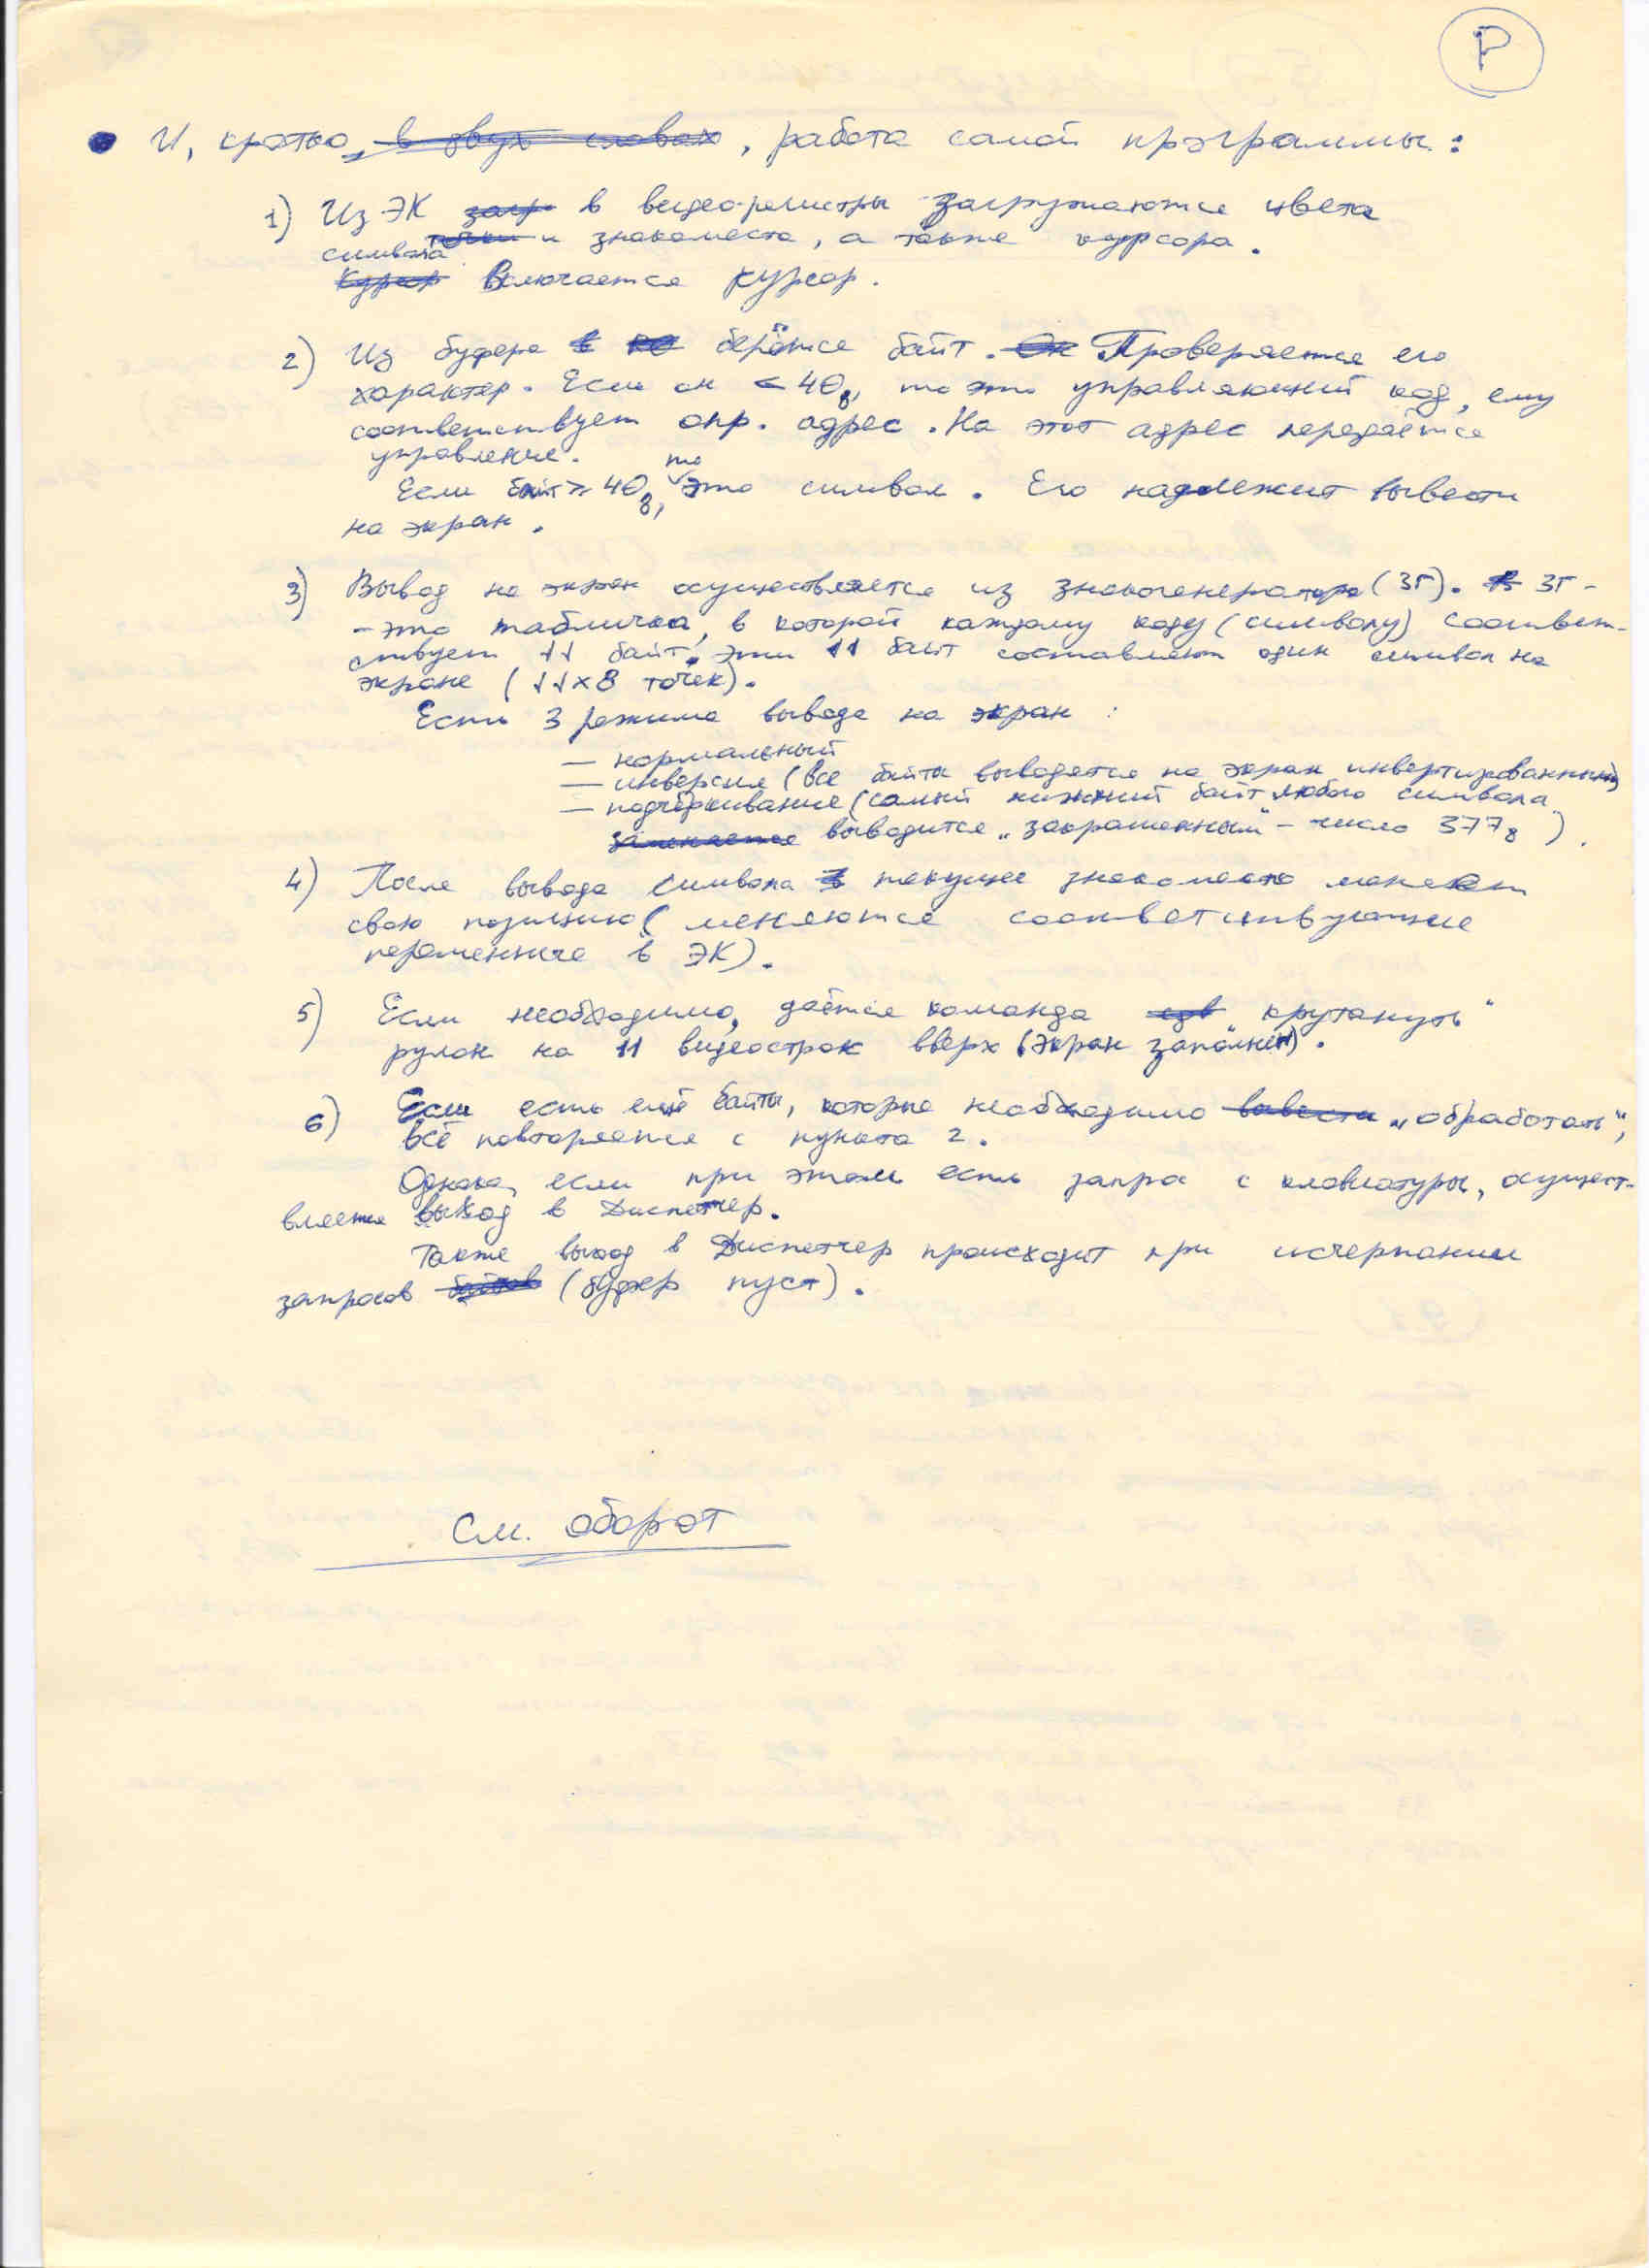 Р
И, кратко, в двух словах, работа самой программы:
1) Из ЭК загр в видеорегистры загружаются цвета
символа точки и знакоместа, а также курсора.
Курсор Включается курсор.
2) Из буфера в берётся байт. Он Проверяется его
характер. Если он < 40₈, то это управляющий код, ему
соответствует опр. адрес. На этот адрес передаётся
управление.
Если байт ≥ 40₈, то это символ. Его надлежит вывести
на экран.
3) Вывод на экран осуществляется из знакогенератора (ЗГ). В ЗГ -
- это табличка, в которой каждому коду (символу) соответ-
ствует 11 байт, эти 11 байт составляют один символ на
экране (11×8 точек).
Есть 3 режима вывода на экран :
— нормальный
— инверсия (все байты выводятся на экран инвертированными)
— подчёркивание (самый нижний байт любого символа
заменяется выводится „закрашенным" - число 377₈).
4) После вывода символа текущее знакоместо меняет
свою позицию (меняются соответствующие
переменные в ЭК).
5) Если необходимо, даётся команда „крутануть"
рулон на 11 видеострок вверх (экран заполнен).
6) Если есть ещё байты, которые необходимо вывести „обработать",
всё повторяется с пункта 2.
Однако, если при этом есть запрос с клавиатуры, осущест-
вляется выход в Диспетчер.
Также выход в Диспетчер происходит при исчерпании
запросов байтов (буфер пуст).
См. оборот